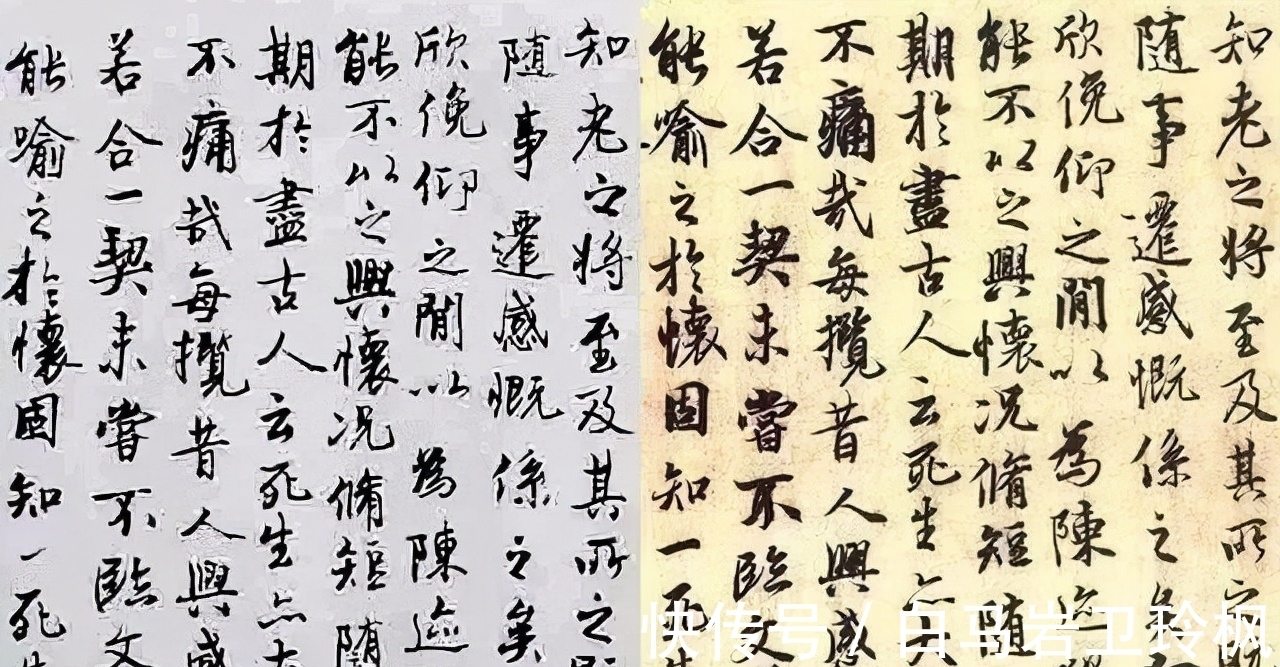 知老之將至及其所之
随事遷感慨係之矣
欣俛仰之閒以為陳迹
能不以之興懷况脩短随
期於盡古人云死生亦大
不痛哉每攬昔人興感
若合一契未嘗不臨文
能喻之於懷固知一死生
知老之將至及其所之
随事遷感慨係之矣
欣俛仰之閒以為陳迹
能不以之興懷况脩短随
期於盡古人云死生亦大
不痛哉每攬昔人興感
若合一契未嘗不臨文
能喻之於懷固知一死
快传号/白马岩卫玲枫